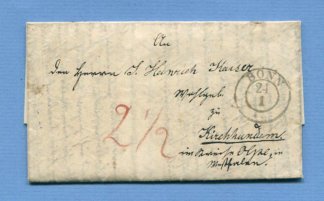 An
den Herrn J. Heinrich Kaiser
Wohlgeb
zu
Kirchhundem
im Kreise Olpe in
Westfalen.
2 1/2
BONN
21
1